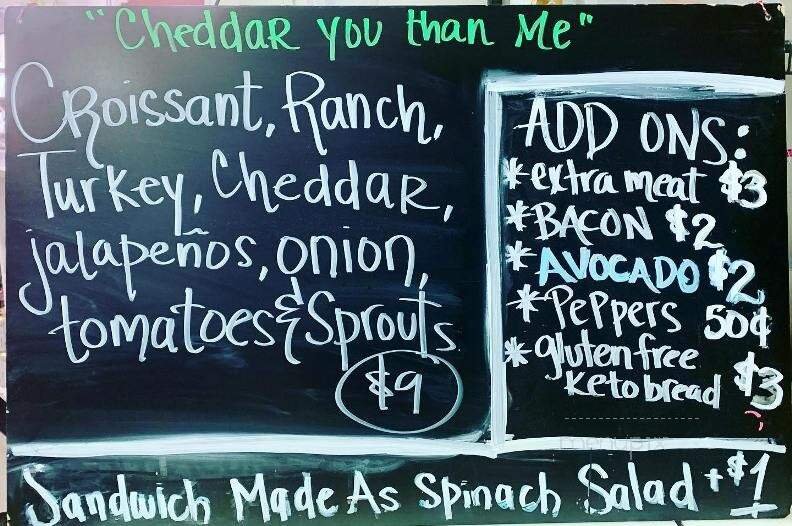 "Cheddar you than Me"
Croissant, Ranch,
Turkey, Cheddar,
jalapeños, onion,
tomatoes & Sprouts
$9
ADD ONS:
*extra meat $3
*BACON $2
*AVOCADO $2
*Peppers 50¢
*gluten free
keto bread $3
Sandwich Made As Spinach Salad +$1